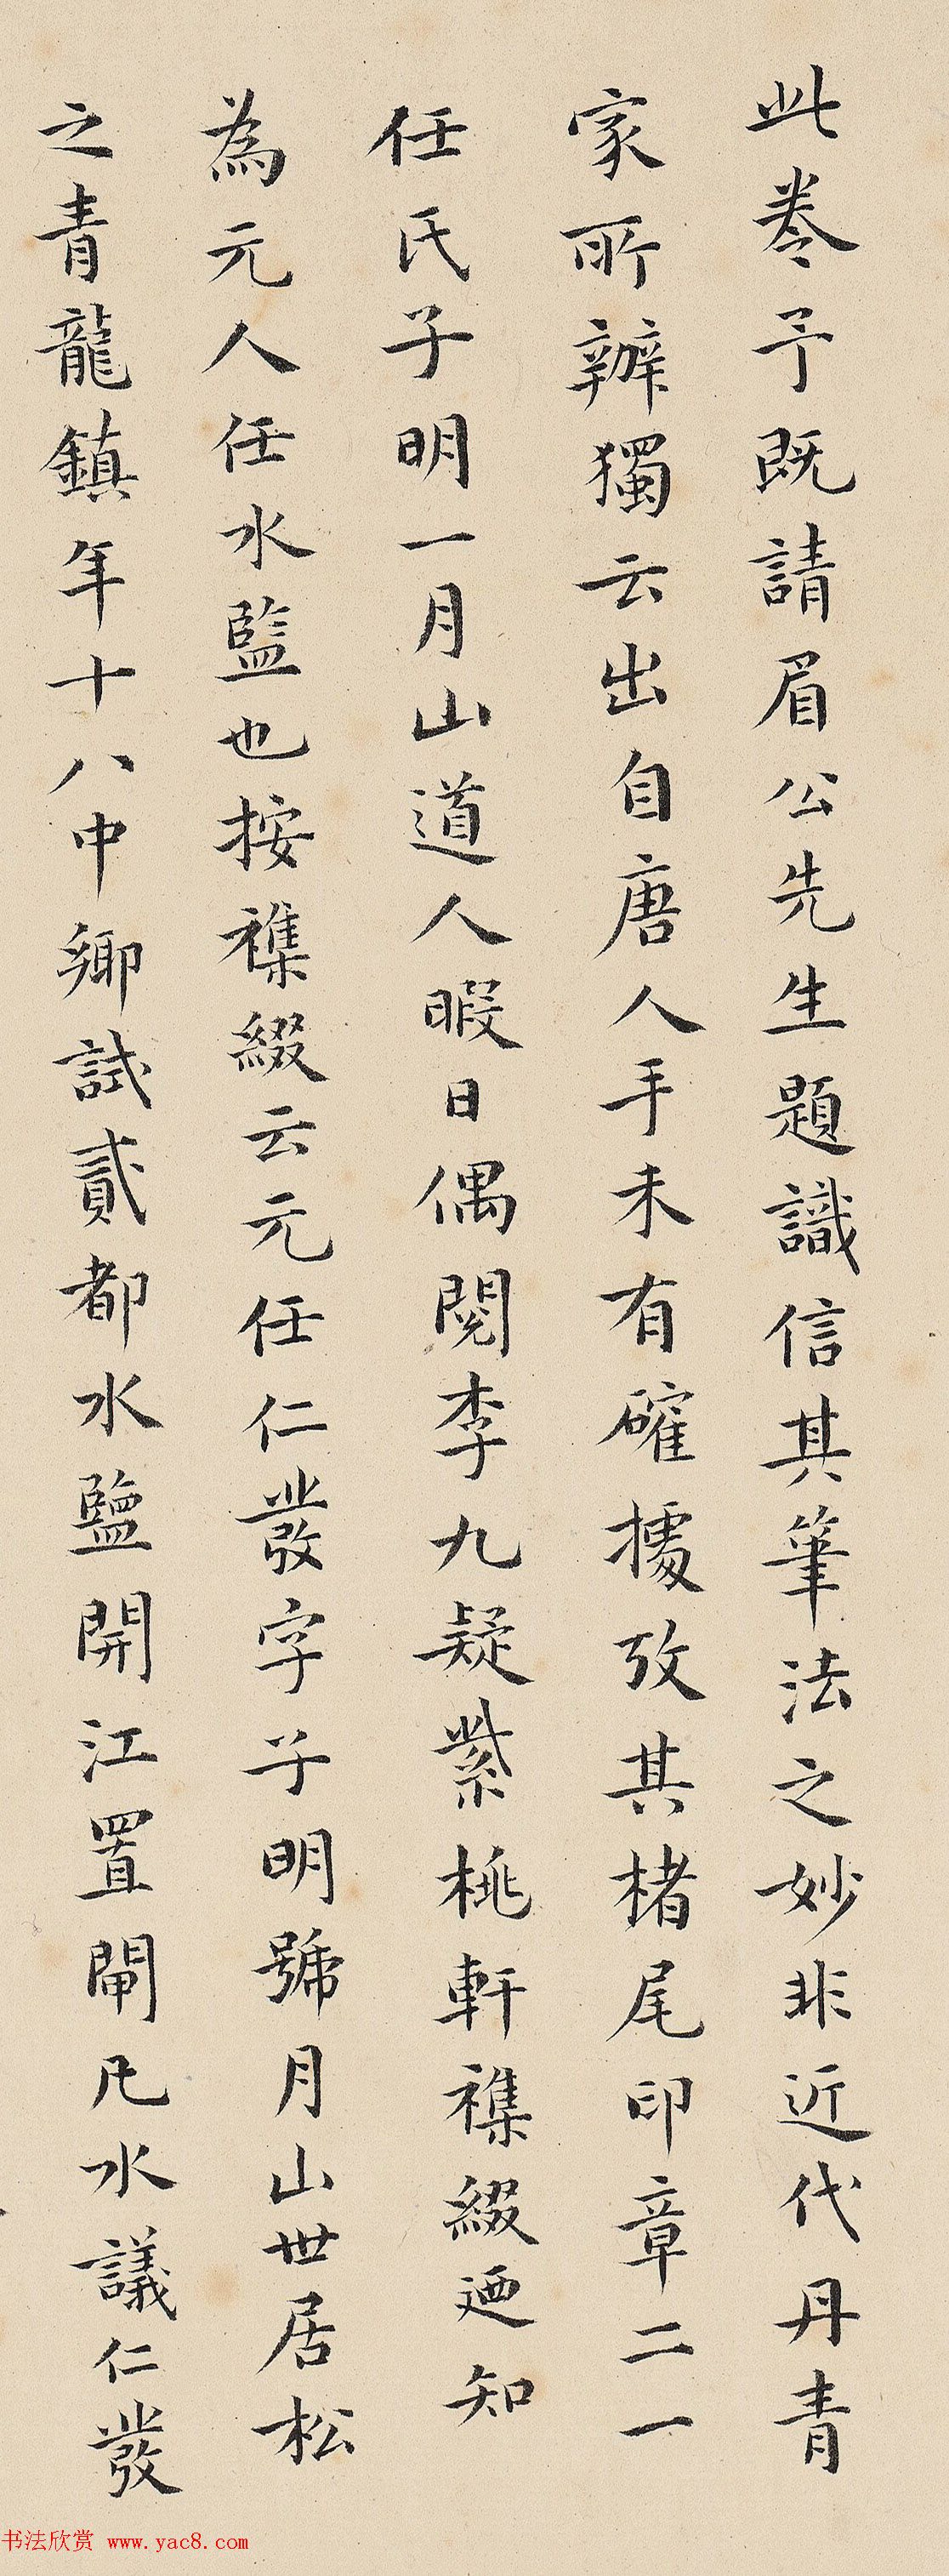 此卷予既請眉公先生題識信其筆法之妙非近代丹青
家所辨獨云出自唐人手未有確據攷其楮尾印章二一
任氏子明一月山道人暇日偶閱李九疑紫桃軒襍綴迺知
為元人任水監也按襍綴云元任仁發字子明號月山世居松
之青龍鎮年十八中鄉試貳都水監開江置閘凡水議仁發
书法欣赏 www.yac8.com